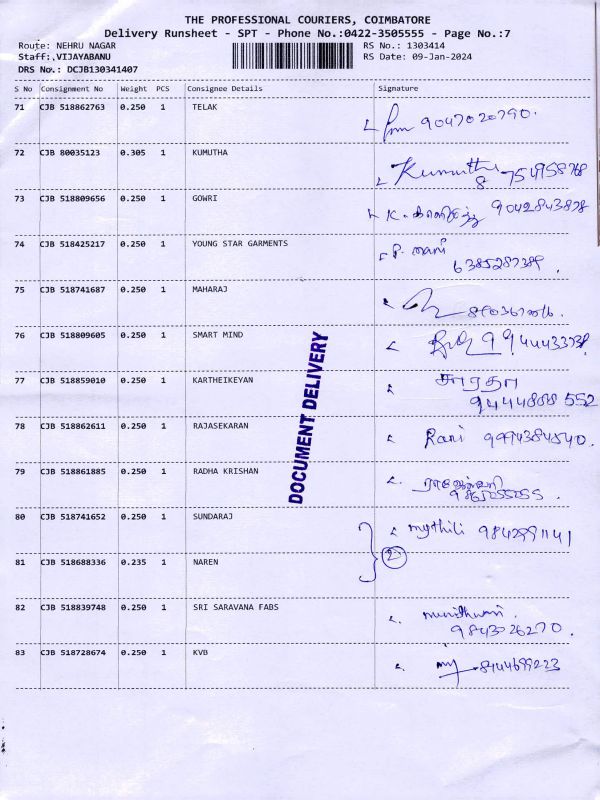 THE PROFESSIONAL COURIERS, COIMBATORE
Delivery Runsheet - SPT - Phone No.:0422-3505555 - Page No.:7
Route: NEHRU NAGAR RS No.: 1303414
Staff:,VIJAYABANU RS Date: 09-Jan-2024
DRS No.: DCJB130341407
S No Consignment No Weight PCS Consignee Details Signature
71 CJB 518862763 0.250 1 TELAK
9047020790.
72 CJB 80035123 0.305 1 KUMUTHA
Kumutha
73 CJB 518809656 0.250 1 GOWRI
K. 9042843878
74 CJB 518425217 0.250 1 YOUNG STAR GARMENTS
P. mani
6385287389.
75 CJB 518741687 0.250 1 MAHARAJ
76 CJB 518809605 0.250 1 SMART MIND
77 CJB 518859010 0.250 1 KARTHEIKEYAN
சாரதா
9444888552
78 CJB 518862611 0.250 1 RAJASEKARAN
Rani 9994384540.
79 CJB 518861885 0.250 1 RADHA KRISHAN
DOCUMENT DELIVERY
80 CJB 518741652 0.250 1 SUNDARAJ
mythili 9842991141
2
81 CJB 518688336 0.235 1 NAREN
82 CJB 518839748 0.250 1 SRI SARAVANA FABS
9843026270.
83 CJB 518728674 0.250 1 KVB
8444699223